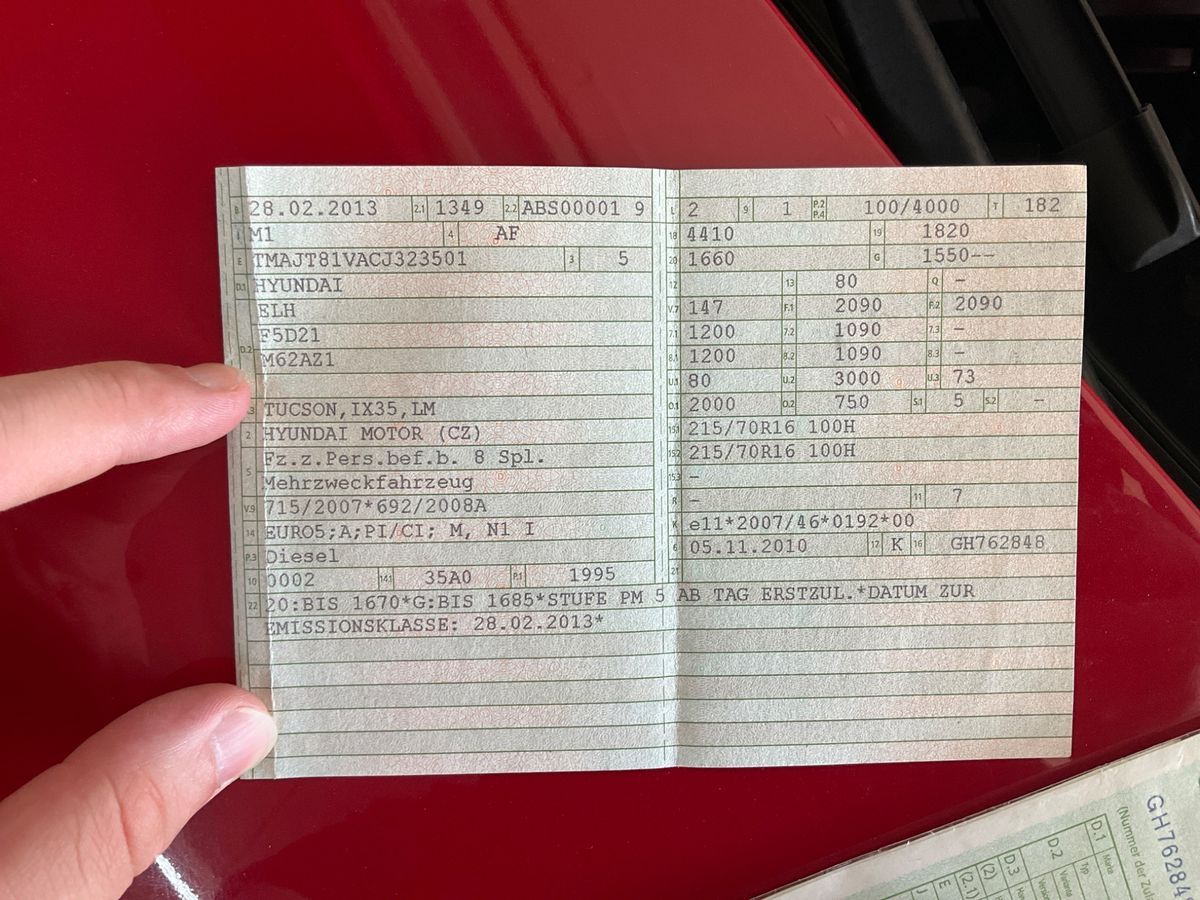 B 28.02.2013 2.1 1349 2.2 ABS00001 9
J M1 4 AF
E TMAJT81VACJ323501 3 5
D.1 HYUNDAI
ELH
F5D21
D.2 M62AZ1
.3 TUCSON,IX35,LM
2 HYUNDAI MOTOR (CZ)
Fz.z.Pers.bef.b. 8 Spl.
5 Mehrzweckfahrzeug
V.9 715/2007*692/2008A
14 EURO5;A;PI/CI; M, N1 I
P.3 Diesel
10 0002 14.1 35A0 P.1 1995
22 20:BIS 1670*G:BIS 1685*STUFE PM 5 AB TAG ERSTZUL.*DATUM ZUR
EMISSIONSKLASSE: 28.02.2013*
L 2 9 1 P.2 P.4 100/4000 T 182
18 4410 19 1820
20 1660 G 1550--
12 13 80 Q -
V.7 147 F.1 2090 F.2 2090
7.1 1200 7.2 1090 7.3 -
8.1 1200 8.2 1090 8.3 -
U.1 80 U.2 3000 U.3 73
O.1 2000 O.2 750 S.1 5 S.2 -
15.1 215/70R16 100H
15.2 215/70R16 100H
15.3 -
R - 11 7
K e11*2007/46*0192*00
6 05.11.2010 17 K 16 GH762848
21
GH76284
(Nummer der Zula
D.1 Marke
D.2 Typ
Variante
Version
D.3
(2)
(2.1)
E
J